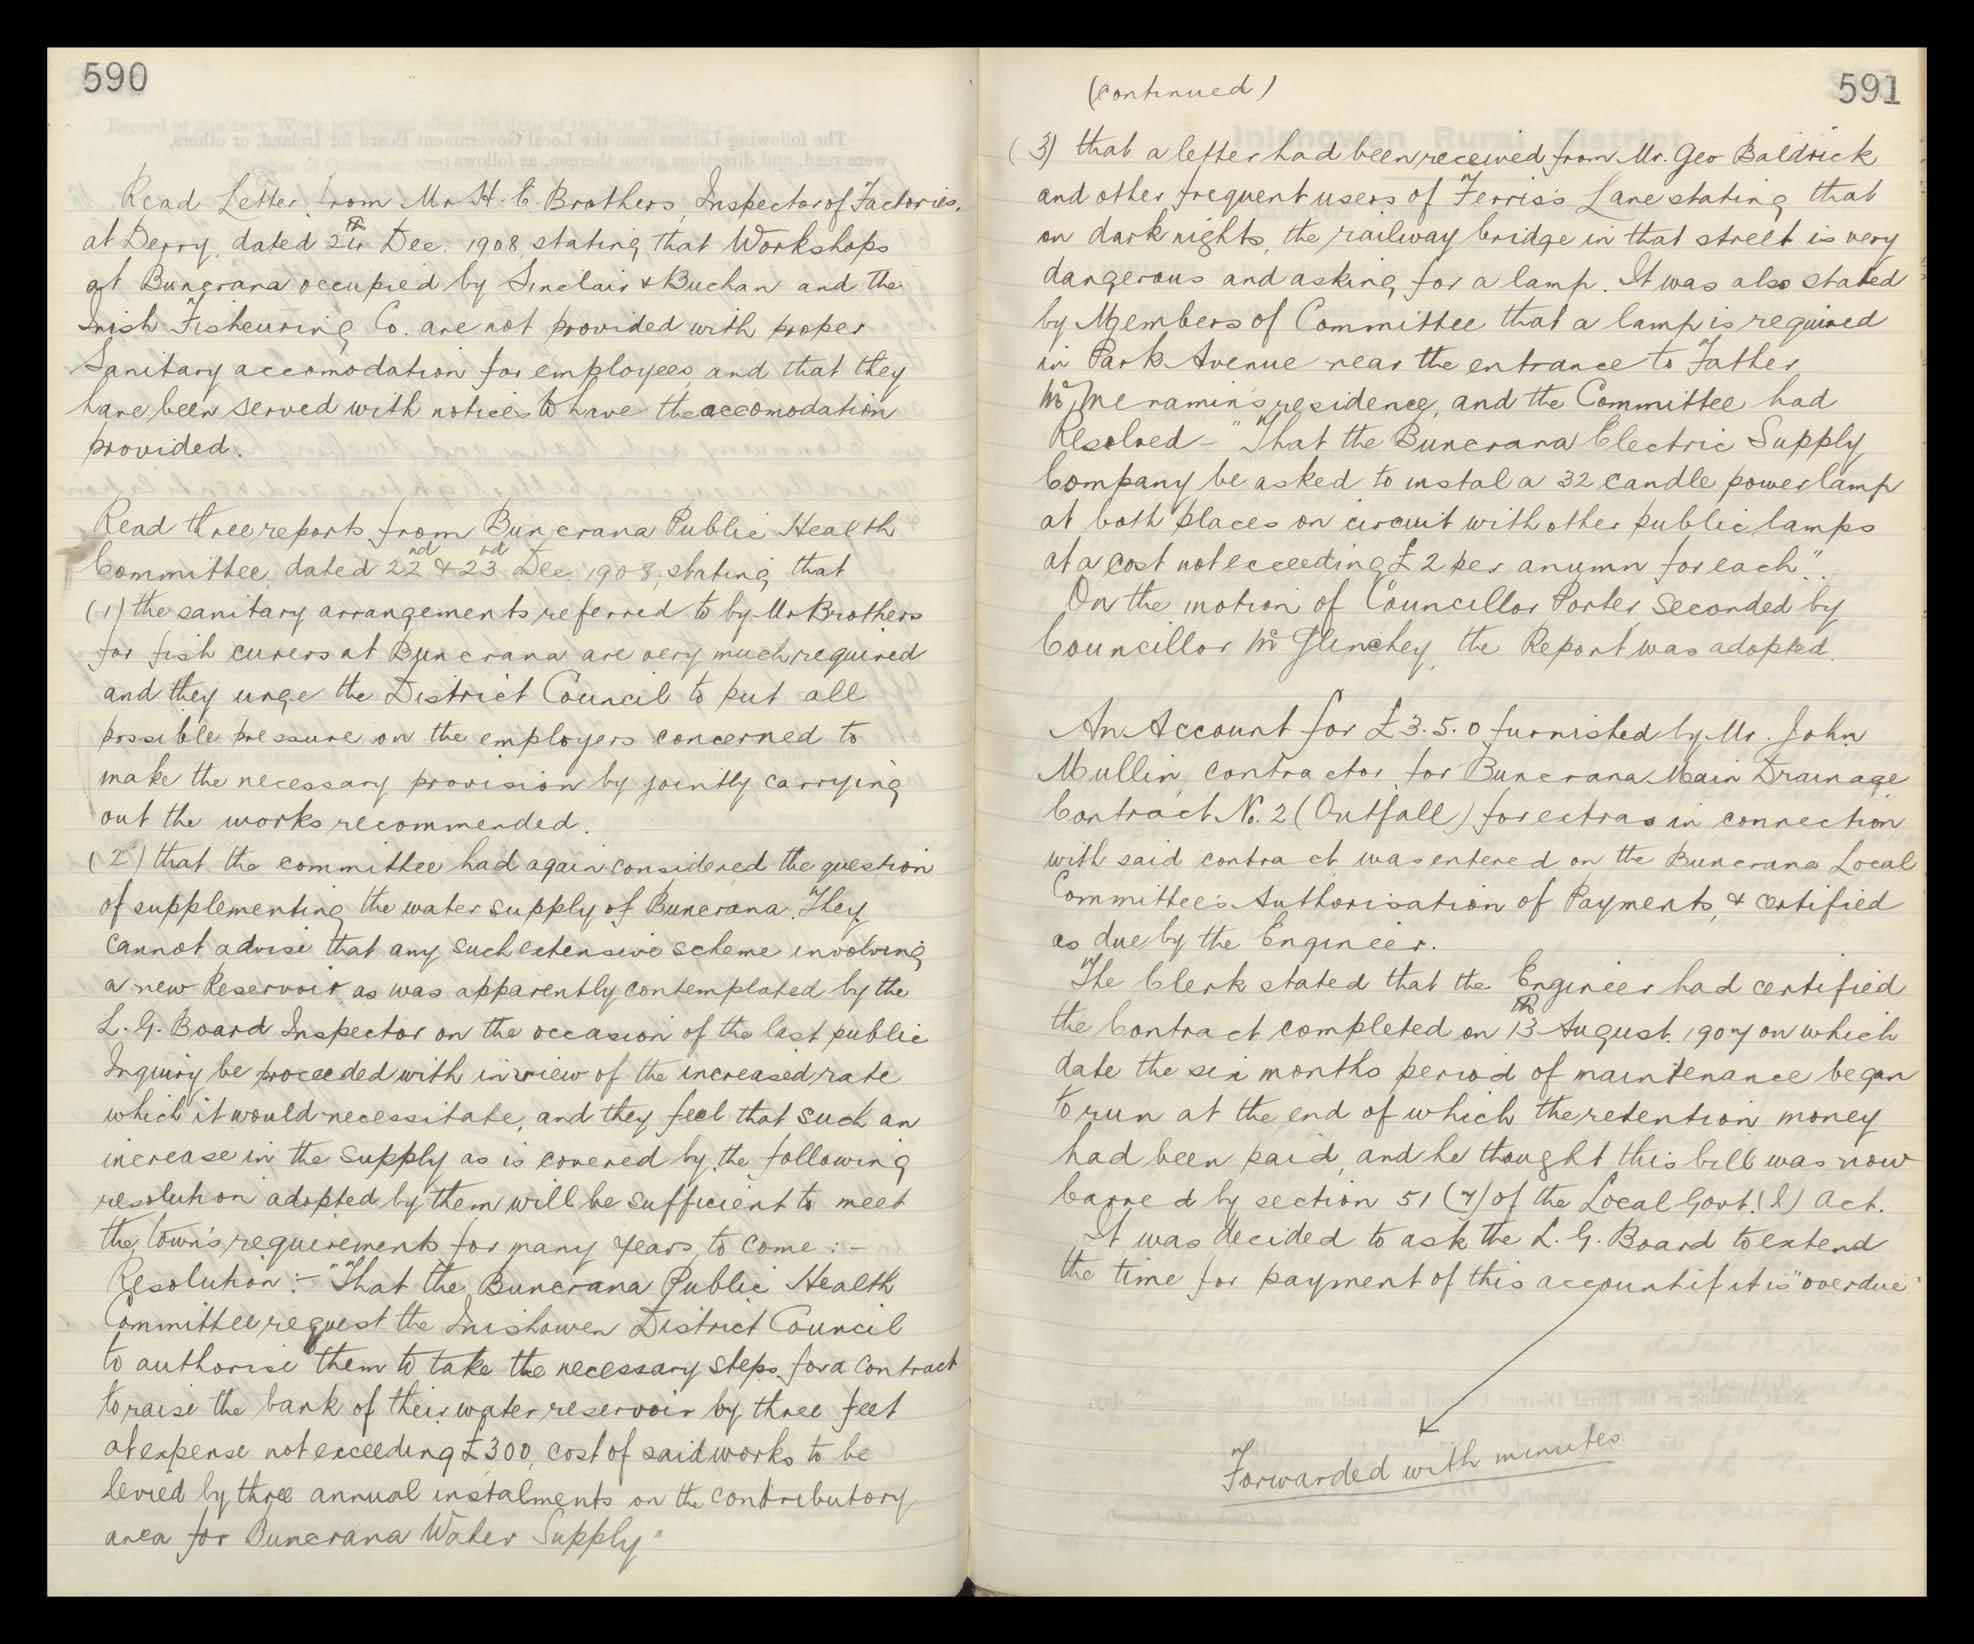 590
Read Letter from Mr H. E. Brothers, Inspector of Factories,
at Derry, dated 24th Dec. 1908, stating that Workshops
at Buncrana occupied by Sinclair & Buchan and the
Irish Fishcuring Co. are not provided with proper
Sanitary accomodation for employees, and that they
have been served with notices to have the accomodation
provided.
Read three reports from Buncrana Public Health
Committee, dated 22nd & 23rd Dec. 1908, stating that
(1) the sanitary arrangements referred to by Mr Brothers
for fish curers at Buncrana are very much required
and they urge the District Council to put all
possible pressure on the employers concerned to
make the necessary provision by jointly carrying
out the works recommended.
(2) that the committee had again considered the question
of supplementing the water supply of Buncrana. They
cannot advise that any such extensive scheme involving
a new Reservoir, as was apparently contemplated by the
L. G. Board Inspector on the occasion of the last public
Inquiry be proceeded with in view of the increased rate
which it would necessitate, and they feel that such an
increase in the supply as is covered by the following
resolution adopted by them will be sufficient to meet
the town's requirements for many years to come :-
Resolution :- "That the Buncrana Public Health
Committee request the Inishowen District Council
to authorise them to take the necessary steps for a contract
to raise the bank of their water reservoir by three feet
at expense not exceeding £300, cost of said works to be
levied by three annual instalments on the contributory
area for Buncrana Water Supply"
(continued)
591
(3) that a letter had been received from Mr. Geo Baldrick
and other frequent users of Ferris's Lane stating that
on dark nights, the railway bridge in that street is very
dangerous and asking for a lamp. It was also stated
by Members of Committee that a lamp is required
in Park Avenue near the entrance to Father
McMenamin's residence, and the Committee had
Resolved - "That the Buncrana Electric Supply
Company be asked to instal a 32 candle power lamp
at both places on circuit with other public lamps
at a cost not exceeding £2 per anumn for each".
On the motion of Councillor Porter, Seconded by
Councillor McGlinchey, the Report was adopted.
An Account for £3.5.0 furnished by Mr. John
Mullin, contractor, for Buncrana Main Drainage
Contract No. 2 (Outfall) for extras in connection
with said contract was entered on the Buncrana Local
Committee's Authorisation of Payments, & certified
as due by the Engineer.
The Clerk stated that the Engineer had certified
the Contract completed on 13th August. 1907 on which
date the six months period of maintenance began
to run at the end of which the retention money
had been paid, and he thought this bill was now
barred by section 51 (7) of the Local Govt. (I) Act.
It was decided to ask the L. G. Board to extend
the time for payment of this account if it is "overdue"
Forwarded with minutes